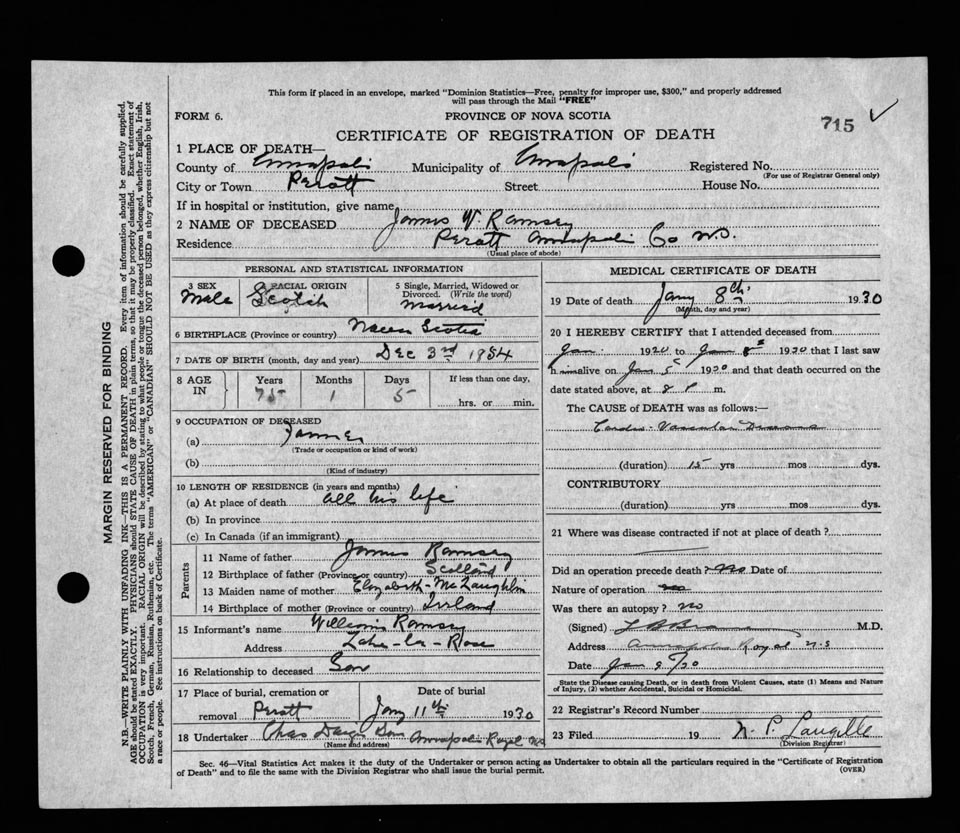 This form if placed in an envelope, marked "Dominion Statistics—Free, penalty for improper use, $300," and properly addressed
will pass through the Mail "FREE"
FORM 6.
PROVINCE OF NOVA SCOTIA
715 ✓
CERTIFICATE OF REGISTRATION OF DEATH
1 PLACE OF DEATH—
County of Annapolis Municipality of Annapolis Registered No.
(For use of Registrar General only)
City or Town Perott Street House No.
If in hospital or institution, give name
2 NAME OF DECEASED James W. Ramsey
Residence Perott Annapolis Co N.S.
(Usual place of abode)
PERSONAL AND STATISTICAL INFORMATION
3 SEX Male
RACIAL ORIGIN Scotch
5 Single, Married, Widowed or
Divorced. (Write the word)
Married
6 BIRTHPLACE (Province or country) Nova Scotia
7 DATE OF BIRTH (month, day and year) Dec 3rd 1854
8 AGE IN Years Months Days If less than one day,
75 1 5 hrs. or min.
9 OCCUPATION OF DECEASED
(a) Farmer
(Trade or occupation or kind of work)
(b)
(Kind of industry)
10 LENGTH OF RESIDENCE (in years and months)
(a) At place of death all his life
(b) In province
(c) In Canada (if an immigrant)
Parents
11 Name of father James Ramsey
12 Birthplace of father (Province or country) Scotland
13 Maiden name of mother Elizabeth McLaughlin
14 Birthplace of mother (Province or country) Irland
15 Informant's name William Ramsey
Address Lake-La-Rose
16 Relationship to deceased Son
17 Place of burial, cremation or Date of burial
removal Perott Jany 11th 1930
18 Undertaker Chas Annapolis Royal NS
(Name and address)
MEDICAL CERTIFICATE OF DEATH
19 Date of death Jany 8th 1930
(Month, day and year)
20 I HEREBY CERTIFY that I attended deceased from
Jan. 1920 to Jan 8th 1930 that I last saw
him alive on Jan 5th 1930 and that death occurred on the
date stated above, at 8 P m.
The CAUSE of DEATH was as follows:—
Cardio-Vascular Disease
(duration) 15 yrs mos dys.
CONTRIBUTORY
(duration) yrs. mos. dys.
21 Where was disease contracted if not at place of death?
Did an operation precede death? No Date of
Nature of operation no
Was there an autopsy? no
(Signed) M.D.
Address Annapolis Royal N.S
Date Jan 9th/30
State the Disease causing Death, or in death from Violent Causes, state (1) Means and Nature
of Injury, (2) whether Accidental, Suicidal or Homicidal.
22 Registrar's Record Number
23 Filed 19 N. P. Langille
(Division Registrar)
Sec. 46—Vital Statistics Act makes it the duty of the Undertaker or person acting as Undertaker to obtain all the particulars required in the "Certificate of Registration
of Death" and to file the same with the Division Registrar who shall issue the burial permit.
(OVER)
MARGIN RESERVED FOR BINDING
N.B.—WRITE PLAINLY WITH UNFADING INK—THIS IS A PERMANENT RECORD. Every item of information should be carefully supplied.
AGE should be stated EXACTLY. PHYSICIANS should STATE CAUSE OF DEATH in plain terms, so that it may be properly classified. Exact statement of
OCCUPATION is very important. RACIAL ORIGIN will be described by stating to what people or tongue the deceased person belonged, whether English, Irish,
Scotch, French, German, Russian, Ruthenian, etc. The terms "AMERICAN" or "CANADIAN" SHOULD NOT BE USED as they express citizenship but not
a race or people. See instructions on back of Certificate.